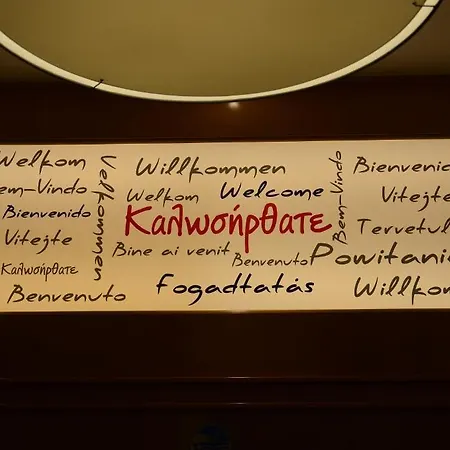 Welkom
Bem-Vindo
Bienvenido
Vitejte
Καλωσήρθατε
Benvenuto
Velkommen
Willkommen
Welkom
Welcome
Καλωσήρθατε
Bine ai venit
Benvenuto
Fogadtatás
Bem-Vindo
Bienvenido
Vitejte
Tervetul
Powitanie
Willkom